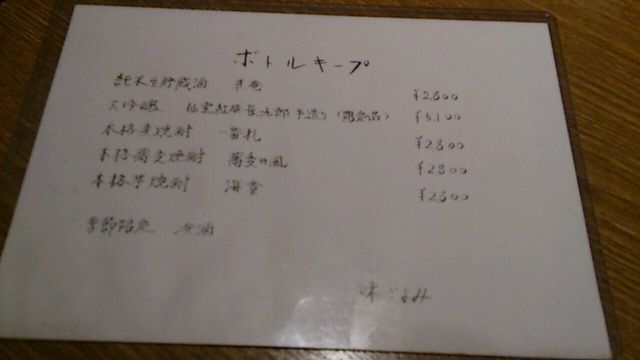 ボトルキープ
純米生貯蔵酒 草庵 ¥2600
大吟醸 手造り(限定品) ¥5,100
本格麦焼酎 一番札 ¥2800
本格蕎麦焼酎 蕎麦の風 ¥2800
本格芋焼酎 海童 ¥2600
季節限定 冷酒
味ごよみ